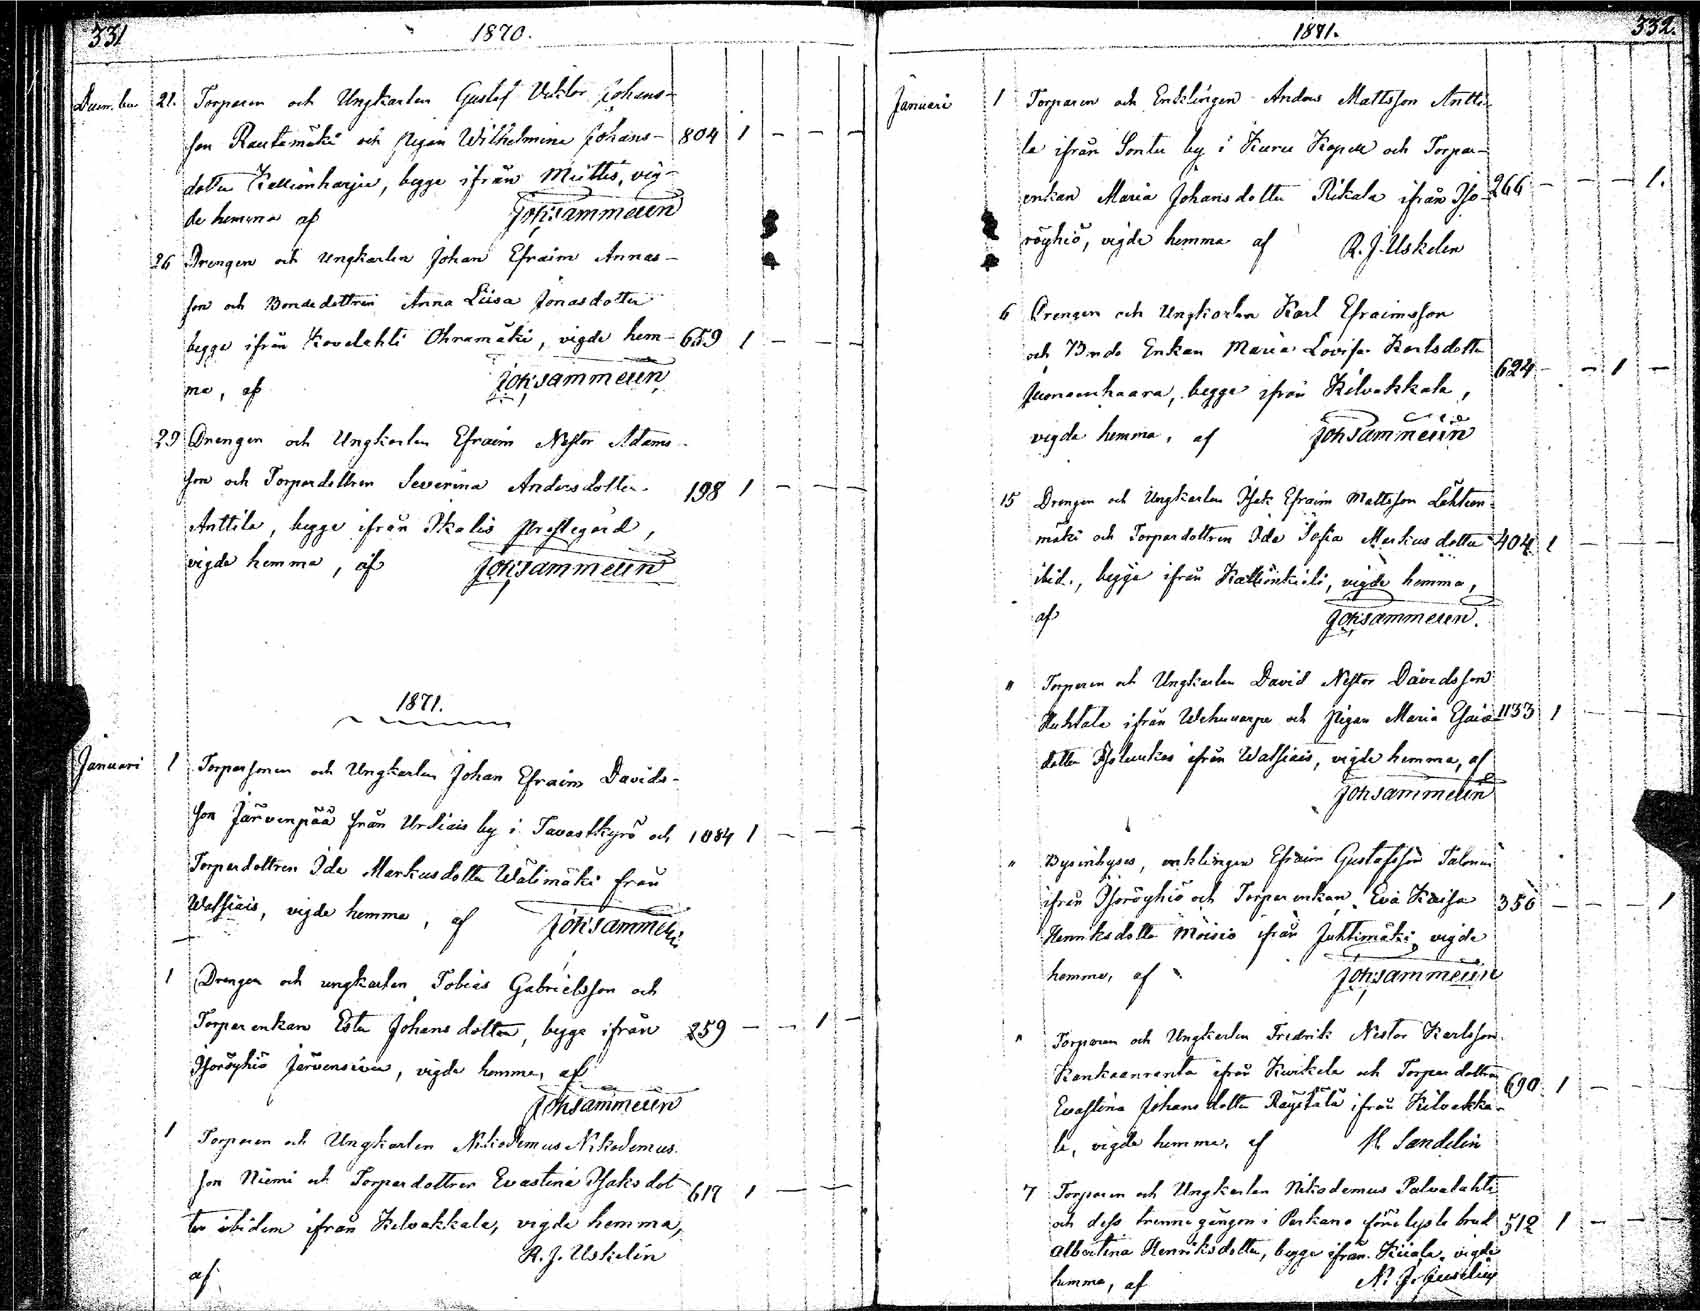 331
1870.
December 21. Torparen och Ungkarlen Gustaf Viktor Johans-
son Rautamäki och pigan Wilhelmina Johans- 804 1 — — —
dotter Kallionharju, begge ifrån Miettis, vig-
de hemma af Joh:sammelin
26 Drengen och Ungkarlen Johan Efraim Annas-
son och Bondedottren Anna Liisa Jonasdotter
begge ifrån Kovelahti Ohramäki, vigde hem- 659 1 — — —
ma, af Joh:sammelin
29 Drengen och Ungkarlen Efraim Nestor Adams-
son och Torpardottren Severina Andersdotter 198 1 — — —
Anttila, begge ifrån Ikalis prestegård,
vigde hemma, af Joh:sammelin
1871.
Januari 1 Torparsonen och Ungkarlen Johan Efraim Davids-
son Järvenpää från Urdiais by i Tavastkyrö och 1084 1 — — —
Torpardottren Ida Markusdotter Wälimäki från
Watsiais, vigde hemma, af Joh:sammelin
1 Drengen och ungkarlen Tobias Gabrielsson och
Torparenkan Ester Johansdotter, begge ifrån 259 — — 1 —
Isoröyhiö Järvensivu, vigde hemma, af
Joh:sammelin
1 Torparen och Ungkarlen Nikodemus Nikodemus-
son Niemi och Torpardottren Evastina Isaksdot- 617 1 — — —
ter ibidem ifrån Kilvakkala, vigde hemma,
af R. J. Uskelin
1871.
332.
Januari 1 Torparen och Enklingen Anders Mattsson Antti-
la ifrån Sontu by i Kuru Kapell och Torpar-
enkan Maria Johansdotter Rikala ifrån Iso- 266 — — — 1.
röyhiö, vigde hemma af R. J. Uskelin
6 Drengen och Ungkarlen Karl Efraimsson
och Bonde Enkan Maria Lovisa Karlsdotter 624 — — 1 —
Juonaanhaara, begge ifrån Kilvakkala,
vigde hemma, af Joh:Sammelin
15 Drengen och Ungkarlen Isak Efraim Mattsson Lähteen-
mäki och Torpardottren Ida Sofia Markusdotter 404 1 — — —
ibid., begge ifrån Kallionkieli, vigde hemma,
af Joh:sammelin.
" Torparen och Ungkarlen David Nestor Davidsson
Huhtala ifrån Wehuvarpe och pigan Maria Esaias- 1133 1 — — —
dotter Isoluukas ifrån Watsiais, vigde hemma, af
Joh:sammelin
" Bysinhyses, enklingen Efraim Gustafsson Salonen
ifrån Isoröyhiö och Torparenkan Eva Kaisa 356 — — — 1
Henriksdotter Moisio ifrån Juhtimäki, vigde
hemma, af Joh:sammelin
" Torparen och Ungkarlen Fredrik Nestor Karlsson
Kankaanranta ifrån Kurkela och Torpardottren 690 1 — — —
Evastina Johansdotter Räystälä ifrån Kilvakka-
la, vigde hemma, af K. Sandelin
7 Torparen och Ungkarlen Nikodemus Palvalahti
och dess trenne gången i Parkano före lyste brud 512 1 — — —
Albertina Henriksdotter, begge ifrån, vigde
hemma, af